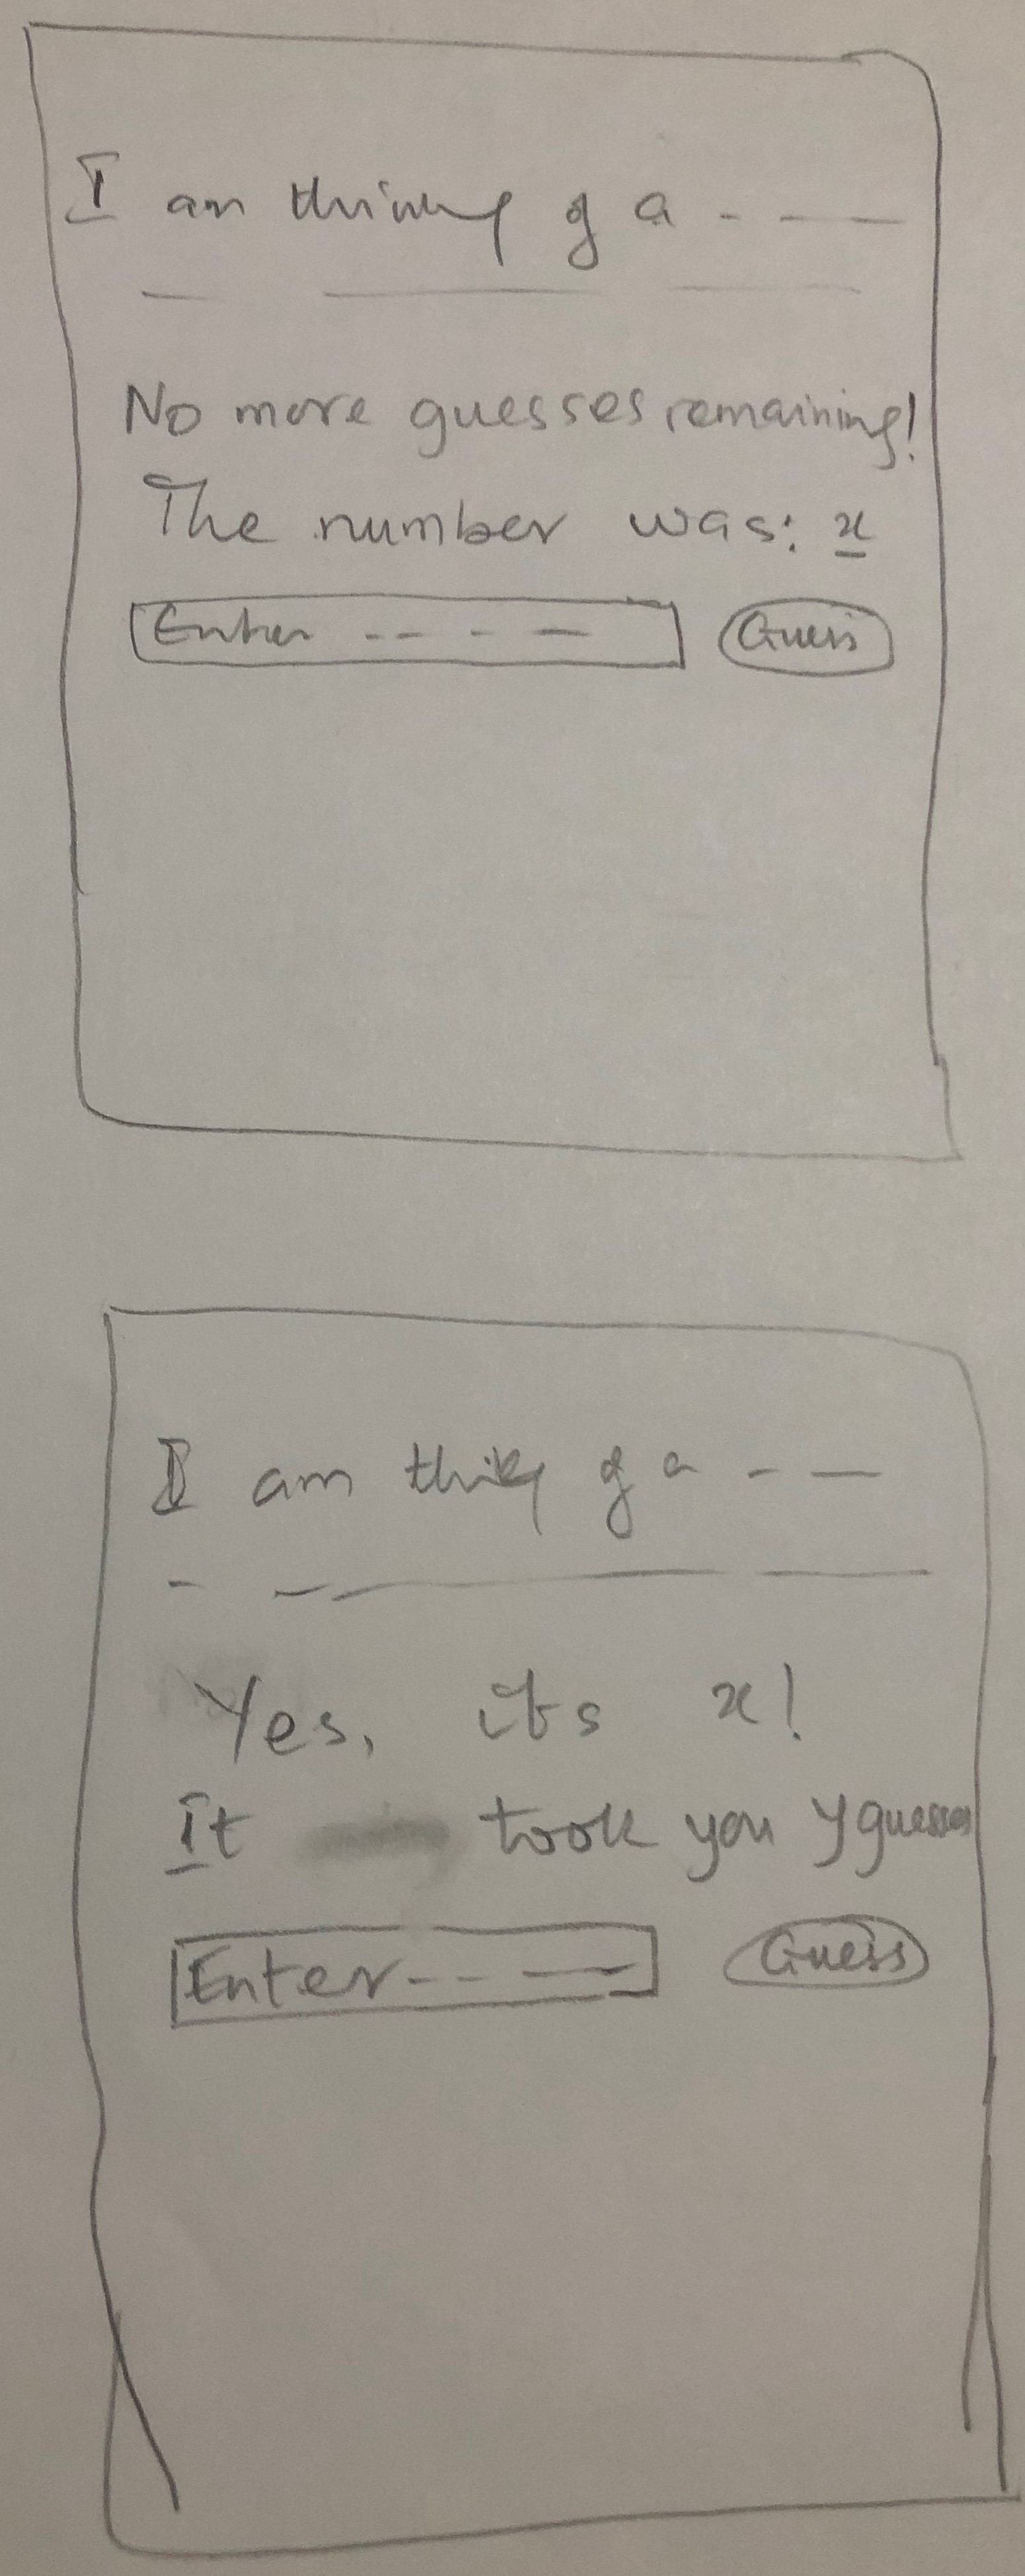 I am thinking of a - - —
No more guesses remaining!
The number was: x
Enter -- - —
Guess
I am thinking of a - —
Yes, its x!
It took you y guesses
Enter -- — —
Guess